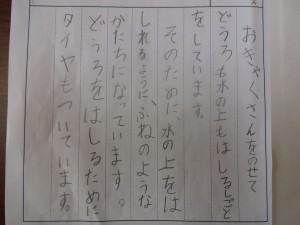 おきゃくさんをのせて
どうろも水の上もはしるしごと
をしています。
そのために、水の上をは
しれるように、ふねのような
かたちになっています。
どうろをはしるために
タイヤもついています。